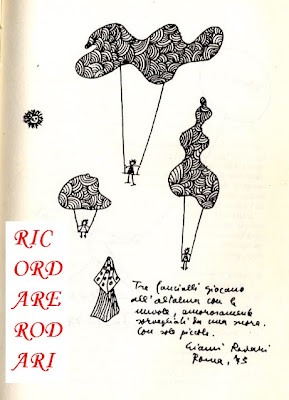 RIC
ORD
ARE
ROD
ARI
Tre fanciulli giocano
all'altalena con le
nuvole, amorosamente
sorvegliati da una suora.
Con sole piccolo.
Gianni Rodari
Roma, '73